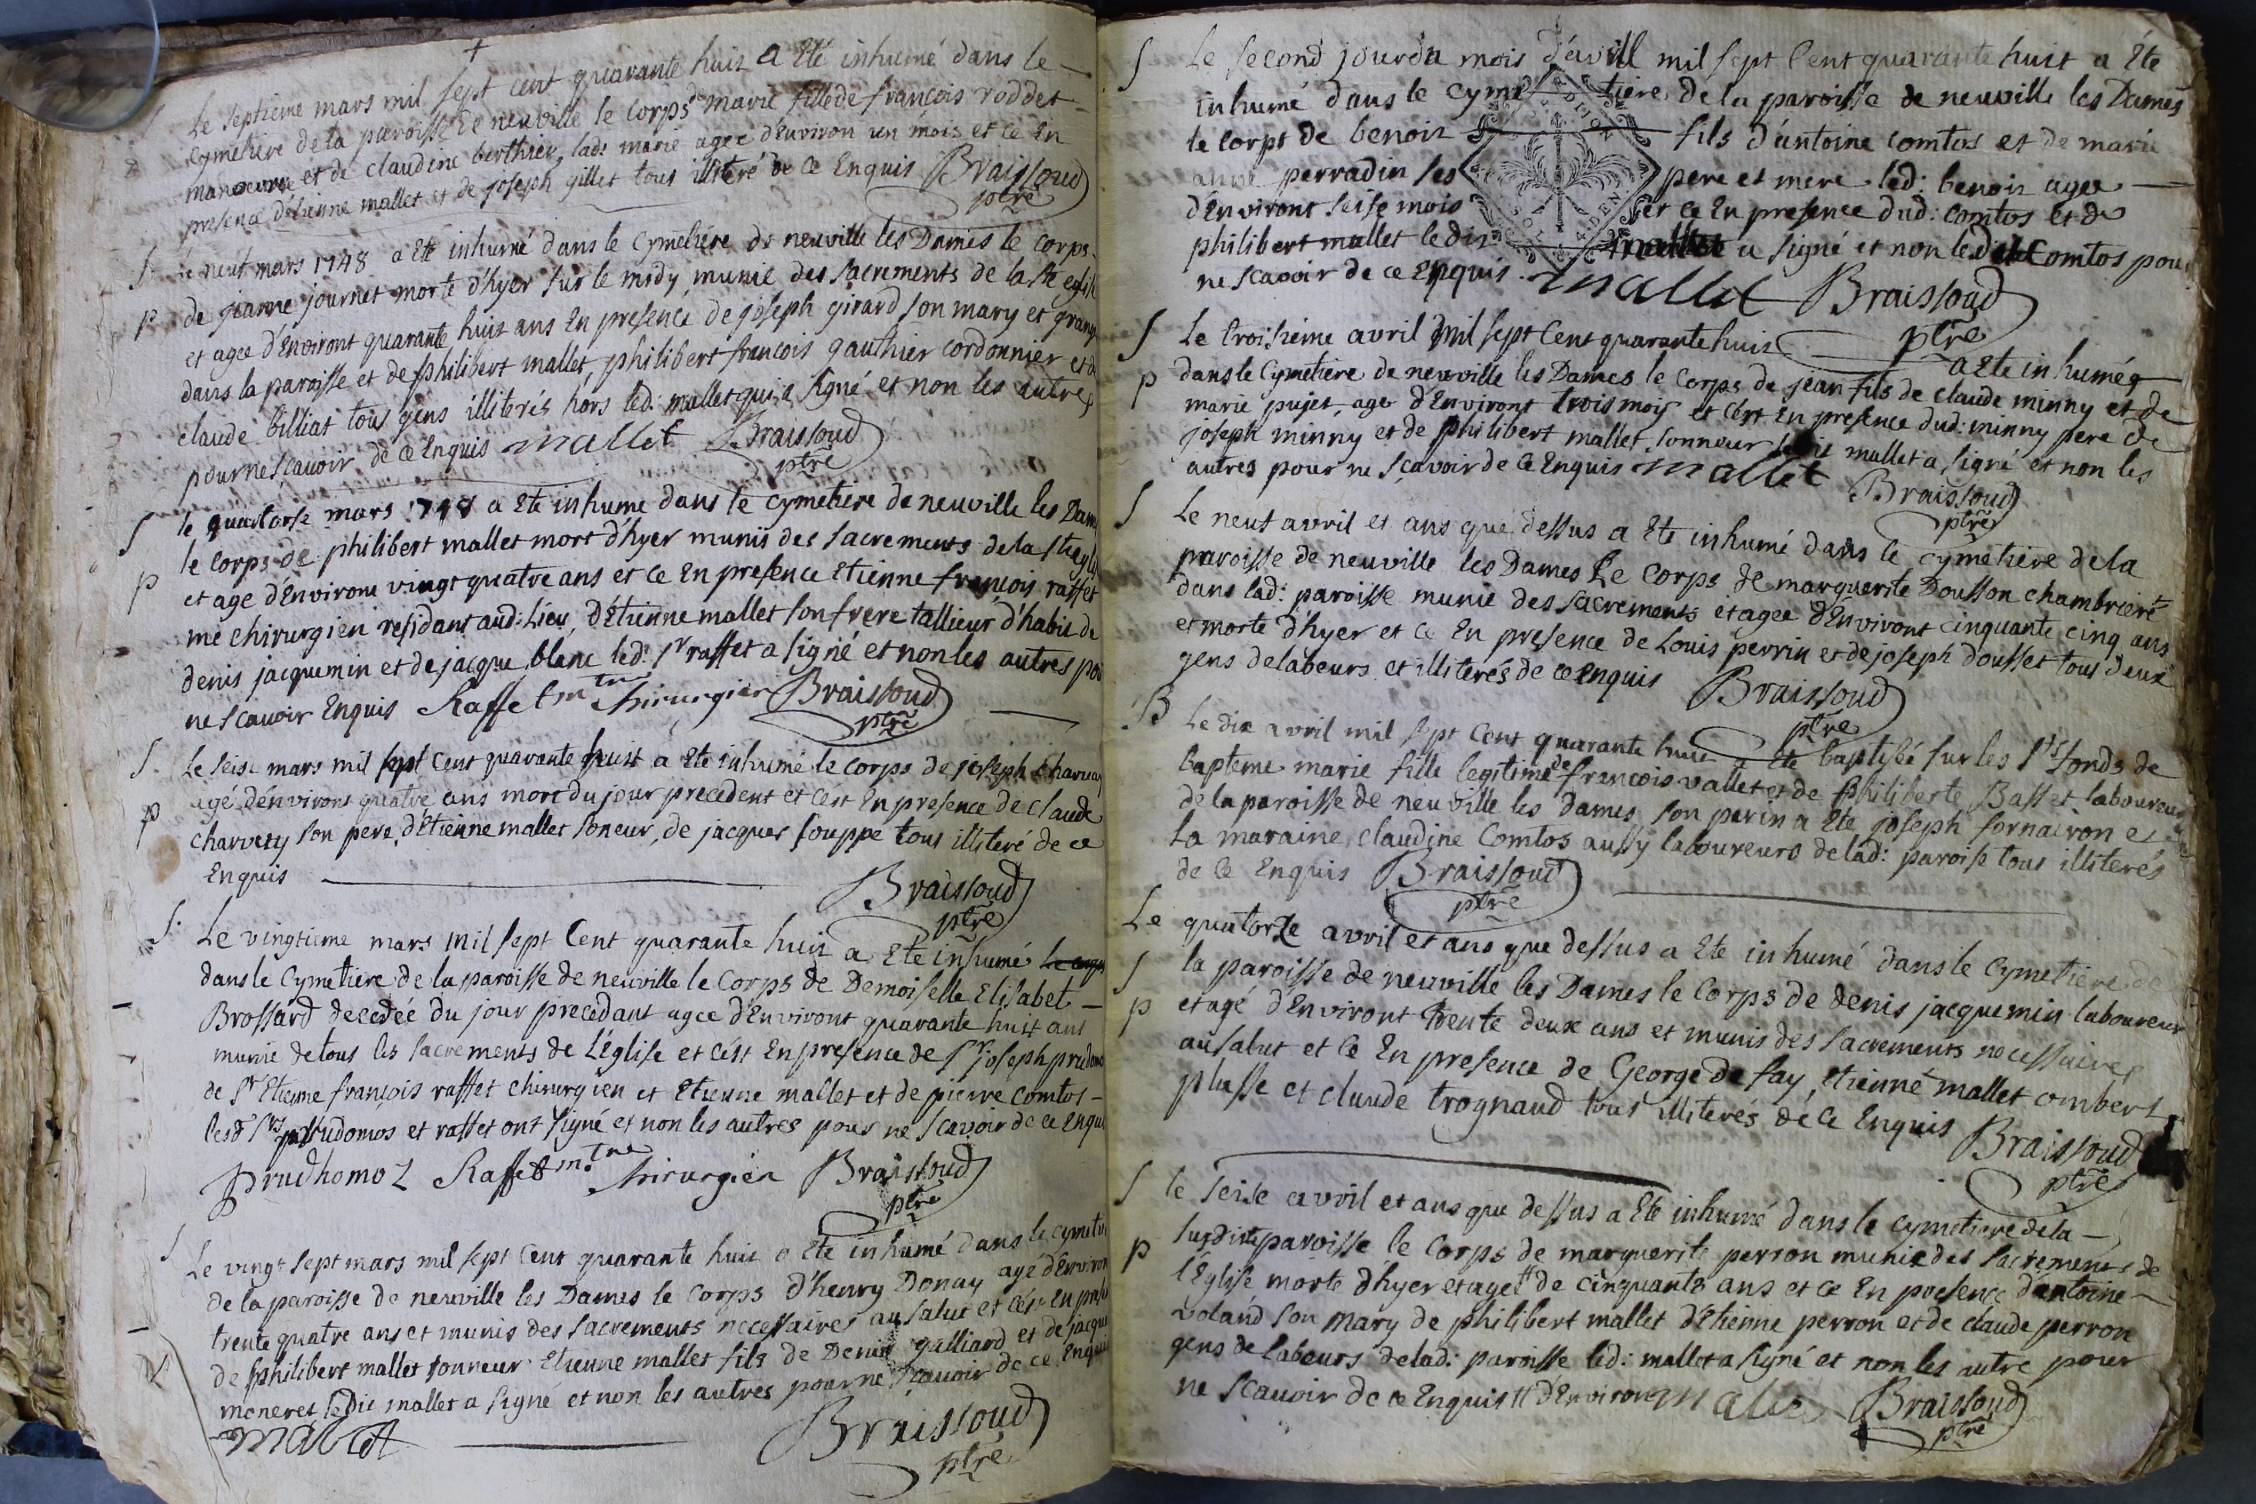 Le septieme mars mil sept cent quarante huit a Eté inhumé dans le
Cymetiere de la paroisse de neuville le Corps de marie fille de françois roddet
manoeuvre et de claudine berthier, lad: marie agee d'Environ un mois et ce En
presence d'étienne mallet et de joseph gillet tous illiteré de ce Enquis Braissoud
ptre
S. Le neuf mars 1748 a Eté inhumé dans le Cymetiére de neuville les Dames le corps
de jeanne journet morte d'hyer sur le midy munie des sacrements de la Ste eglise
P et agee d'Environt quarante huit ans En presence de joseph girard son mary et
dans la paroisse et de philibert mallet, philibert françois gauthier cordonnier et de
claude billiat tous gens illiterés hors led: mallet qui a signé et non les autres
pour ne sçavoir de ce Enquis mallet Braissoud
ptre
S le quartorse mars 1748 a Eté inhumé dans le Cymetiere de neuville les Dam
le corps de philibert mallet mort d'hyer munii des sacrements de la Ste
P et age d'Environt vingt quatre ans et ce En presence Etienne françois raffet
me chirurgien residant aud: Lieu, d'Etienne mallet son frere tallieur d'habit de
denis jacquemin et de jacque blanc led: sr raffet a signé et non les autres pou
ne scavoir Enquis Raffet mtre chirurgien Braissoud
ptre
S. Le seise mars mil sept Cent quarante huit a Eté inhumé le corps de joseph
P agé d'énviront quatre ans mort du jour precedent et cest En presence de claude
charvety son pere, d'Etienne mallet soneur, de jacques souppe tous illiteré de ce
Enquis
Braissoud
ptre
S. Le vingtieme mars mil sept Cent quarante huit a Eté inhumé Le corps
dans le Cymetiere de la paroisse de neuville le Corps de Demoiselle Elisabet
Brossard decedée du jour precedant agee d'Environt quarante huit ans
munie de tous les sacrements de L'église et cést En presence de sr joseph
de sr Etienne françois raffet chirurgien et Etienne mallet et de pierre comtos
lesd srs prudomos et raffet ont signé et non les autres pour ne scavoir de ce Enqu
Prudhomoz Raffet mtre chirurgien Braissoud
ptre
S Le vingt sept mars mil sept Cent quarante huit a Eté inhumé dans le cymeti
de la paroisse de neuville les Dames le Corps d'henry Donay agé d'Environ
trente quatre ans et munis des sacrements necessaires au salut et cést En
de philibert mallet sonneur Etienne mallet fils de Denis galliard et de jacque
moneret ledit mallet a signé et non les autres pour ne sçavoir de ce Enqui
mallet Braissoud
ptre
S Le second jour du mois d'avill mil sept Cent quarante huit a Eté
inhumé dans le Cymetiere de la paroisse de neuville les Dames
le corps de benoit fils d'antoine comtos et de marie
anne perradin ses pere et mere led: benoit agee
d'Environt seise mois et ce En presence dud: comtos et de
philibert mallet le dit mallet a signé et non led Comtos pour
ne scavoir de ce Enquis mallet Braissoud
ptre
S Le troisieme avril mil sept Cent quarante huit a Eté inhumé
P dans le Cymetiere de neuville les Dames le corps de jean fils de claude minny et de
marie pujet, age d'Environt trois mois et cést En presence dud: minny pere de
joseph minny et de philibert mallet, sonneur ledit mallet a signé et non les
autres pour ne sçavoir de ce Enquis mallet Braissoud
ptre
S Le neuf avril et ans que dessus a Eté inhumé dans le Cymetiere de la
paroisse de neuville les Dames Le Corps de marguerite Dousson chambriere
dans lad: paroisse munie des sacrements et agee d'Environt cinquante cinq ans
et morte d'hyer et ce En presence de Louis perrin et de joseph dousset tous deux
gens de labeurs et illiterés de ce Enquis Braissoud
ptre
B Le dix avril mil sept Cent quarante huit a Eté baptisée sur les sts fonds de
bapteme marie fille legitime de francois vallet et de philiberte Basset laboureur
de la paroisse de neuville les Dames son parin a Eté joseph fornairon et
La maraine, claudine Comtos aussy laboureurs de lad: paroise tous illiterés
de ce Enquis Braissoud
ptre
Le quatorze avril et ans que dessus a Eté inhumé dans le Cymetiere de
S la paroisse de neuville les Dames le corps de denis jacquemin laboureur
P et agé d'Environt trente deux ans et munis des sacrements necessaires
au salut et ce En presence de George de fay, etienne mallet combert
plusse et claude trognaud tous illiterés de ce Enquis Braissoud
ptre
S le seise avril et ans que dessus a Eté inhumé dans le Cymetiere de la
P susdite paroisse le Corps de marguerite perron munie des sacrements de
l'Eglise morte d'hyer et agee # de cinquante ans et ce En presence d'antoine
voland son mary de philibert mallet d'Etienne perron et de claude perron
gens de labeurs de lad: paroisse led: mallet a signé et non les autre pour
ne scavoir de ce Enquis # d'Environ mallet Braissoud
ptre